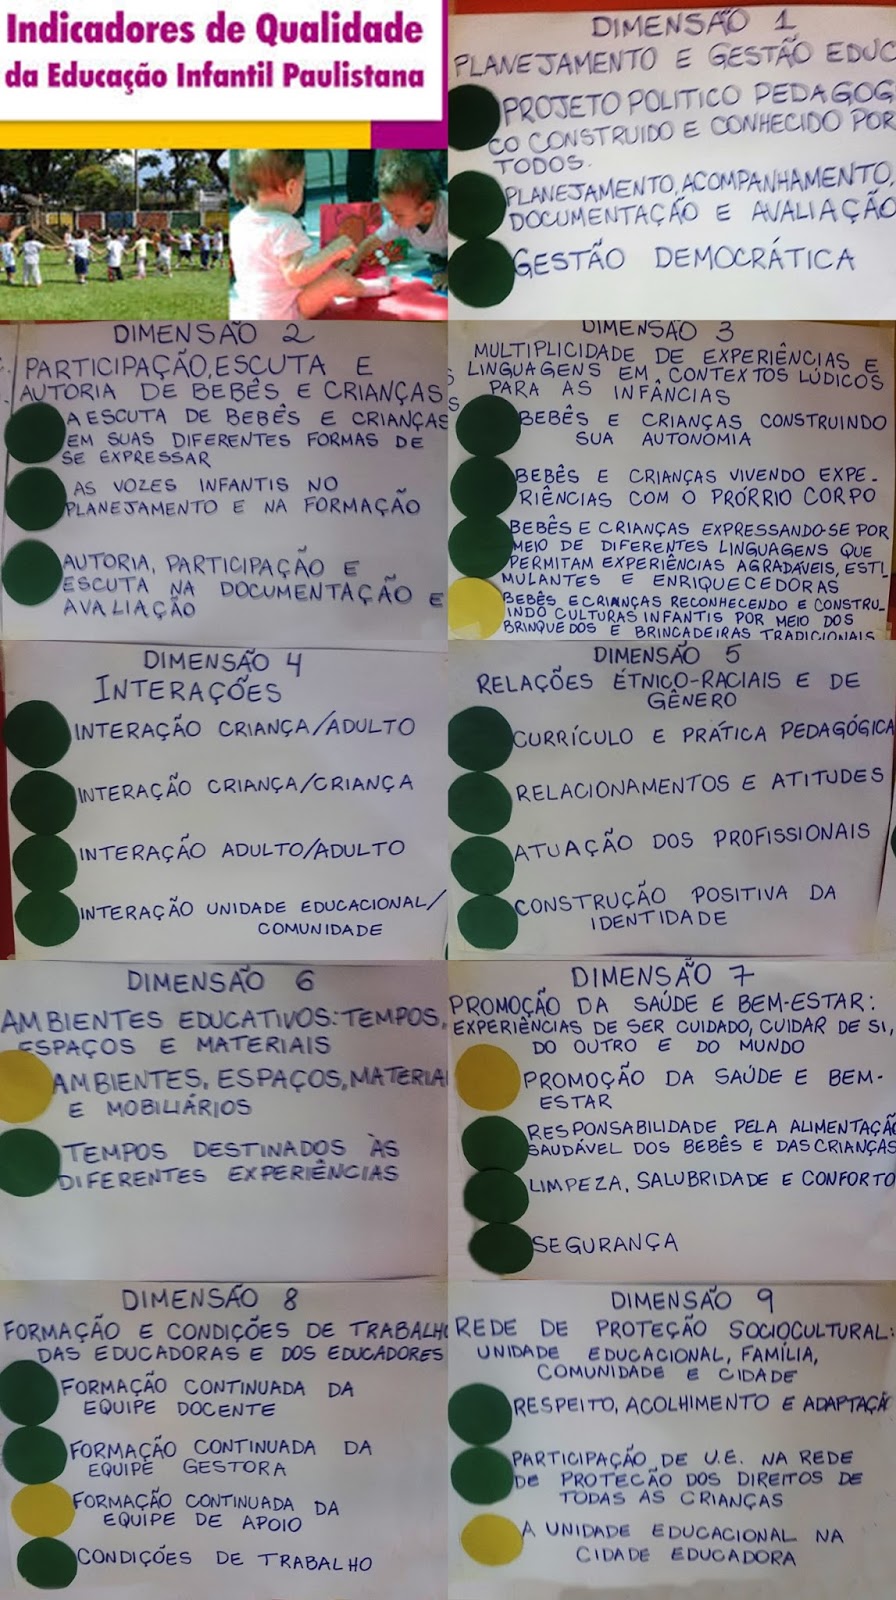 Indicadores de Qualidade
da Educação Infantil Paulistana
DIMENSÃO 1
PLANEJAMENTO E GESTÃO EDUC
PROJETO POLITICO PEDAGOG
CO CONSTRUIDO E CONHECIDO POR
TODOS.
PLANEJAMENTO, ACOMPANHAMENTO,
DOCUMENTAÇÃO E AVALIAÇÃO
GESTÃO DEMOCRÁTICA
DIMENSÃO 2
PARTICIPAÇÃO, ESCUTA E
AUTORIA DE BEBÊS E CRIANÇAS
A ESCUTA DE BEBÊS E CRIANÇAS
EM SUAS DIFERENTES FORMAS DE
SE EXPRESSAR
AS VOZES INFANTIS NO
PLANEJAMENTO E NA FORMAÇÃO
AUTORIA, PARTICIPAÇÃO E
ESCUTA NA DOCUMENTAÇÃO E
AVALIAÇÃO
DIMENSÃO 3
MULTIPLICIDADE DE EXPERIÊNCIAS E
LINGUAGENS EM CONTEXTOS LÚDICOS
PARA AS INFÂNCIAS
BEBÊS E CRIANÇAS CONSTRUINDO
SUA AUTONOMIA
BEBÊS E CRIANÇAS VIVENDO EXPE-
RIÊNCIAS COM O PRÓRRIO CORPO
BEBÊS E CRIANÇAS EXPRESSANDO-SE POR
MEIO DE DIFERENTES LINGUAGENS QUE
PERMITAM EXPERIÊNCIAS AGRADÁVEIS, ESTI-
MULANTES E ENRIQUECEDORAS
BEBÊS E CRIANÇAS RECONHECENDO E CONSTRU-
INDO CULTURAS INFANTIS POR MEIO DOS
BRINQUEDOS E BRINCADEIRAS TRADICIONAIS
DIMENSÃO 4
INTERAÇÕES
INTERAÇÃO CRIANÇA/ADULTO
INTERAÇÃO CRIANÇA/CRIANÇA
INTERAÇÃO ADULTO/ADULTO
INTERAÇÃO UNIDADE EDUCACIONAL/
COMUNIDADE
DIMENSÃO 5
RELAÇÕES ÉTNICO-RACIAIS E DE
GÊNERO
CURRÍCULO E PRÁTICA PEDAGÓGICA
RELACIONAMENTOS E ATITUDES
ATUAÇÃO DOS PROFISSIONAIS
CONSTRUÇÃO POSITIVA DA
IDENTIDADE
DIMENSÃO 6
AMBIENTES EDUCATIVOS: TEMPOS,
ESPAÇOS E MATERIAIS
AMBIENTES, ESPAÇOS, MATERIA
E MOBILIÁRIOS
TEMPOS DESTINADOS ÀS
DIFERENTES EXPERIÊNCIAS
DIMENSÃO 7
PROMOÇÃO DA SAÚDE E BEM-ESTAR:
EXPERIÊNCIAS DE SER CUIDADO, CUIDAR DE SI,
DO OUTRO E DO MUNDO
PROMOÇÃO DA SAÚDE E BEM-
ESTAR
RESPONSABILIDADE PELA ALIMENTAÇÃO
SAUDÁVEL DOS BEBÊS E DAS CRIANÇAS
LIMPEZA, SALUBRIDADE E CONFORTO
SEGURANÇA
DIMENSÃO 8
FORMAÇÃO E CONDIÇÕES DE TRABALHO
DAS EDUCADORAS E DOS EDUCADORES
FORMAÇÃO CONTINUADA DA
EQUIPE DOCENTE
FORMAÇÃO CONTINUADA DA
EQUIPE GESTORA
FORMAÇÃO CONTINUADA DA
EQUIPE DE APOIO
CONDIÇÕES DE TRABALHO
DIMENSÃO 9
REDE DE PROTEÇÃO SOCIOCULTURAL:
UNIDADE EDUCACIONAL, FAMÍLIA,
COMUNIDADE E CIDADE
RESPEITO, ACOLHIMENTO E ADAPTAÇÃO
PARTICIPAÇÃO DE U.E. NA REDE
DE PROTECÃO DOS DIREITOS DE
TODAS AS CRIANÇAS
A UNIDADE EDUCACIONAL NA
CIDADE EDUCADORA